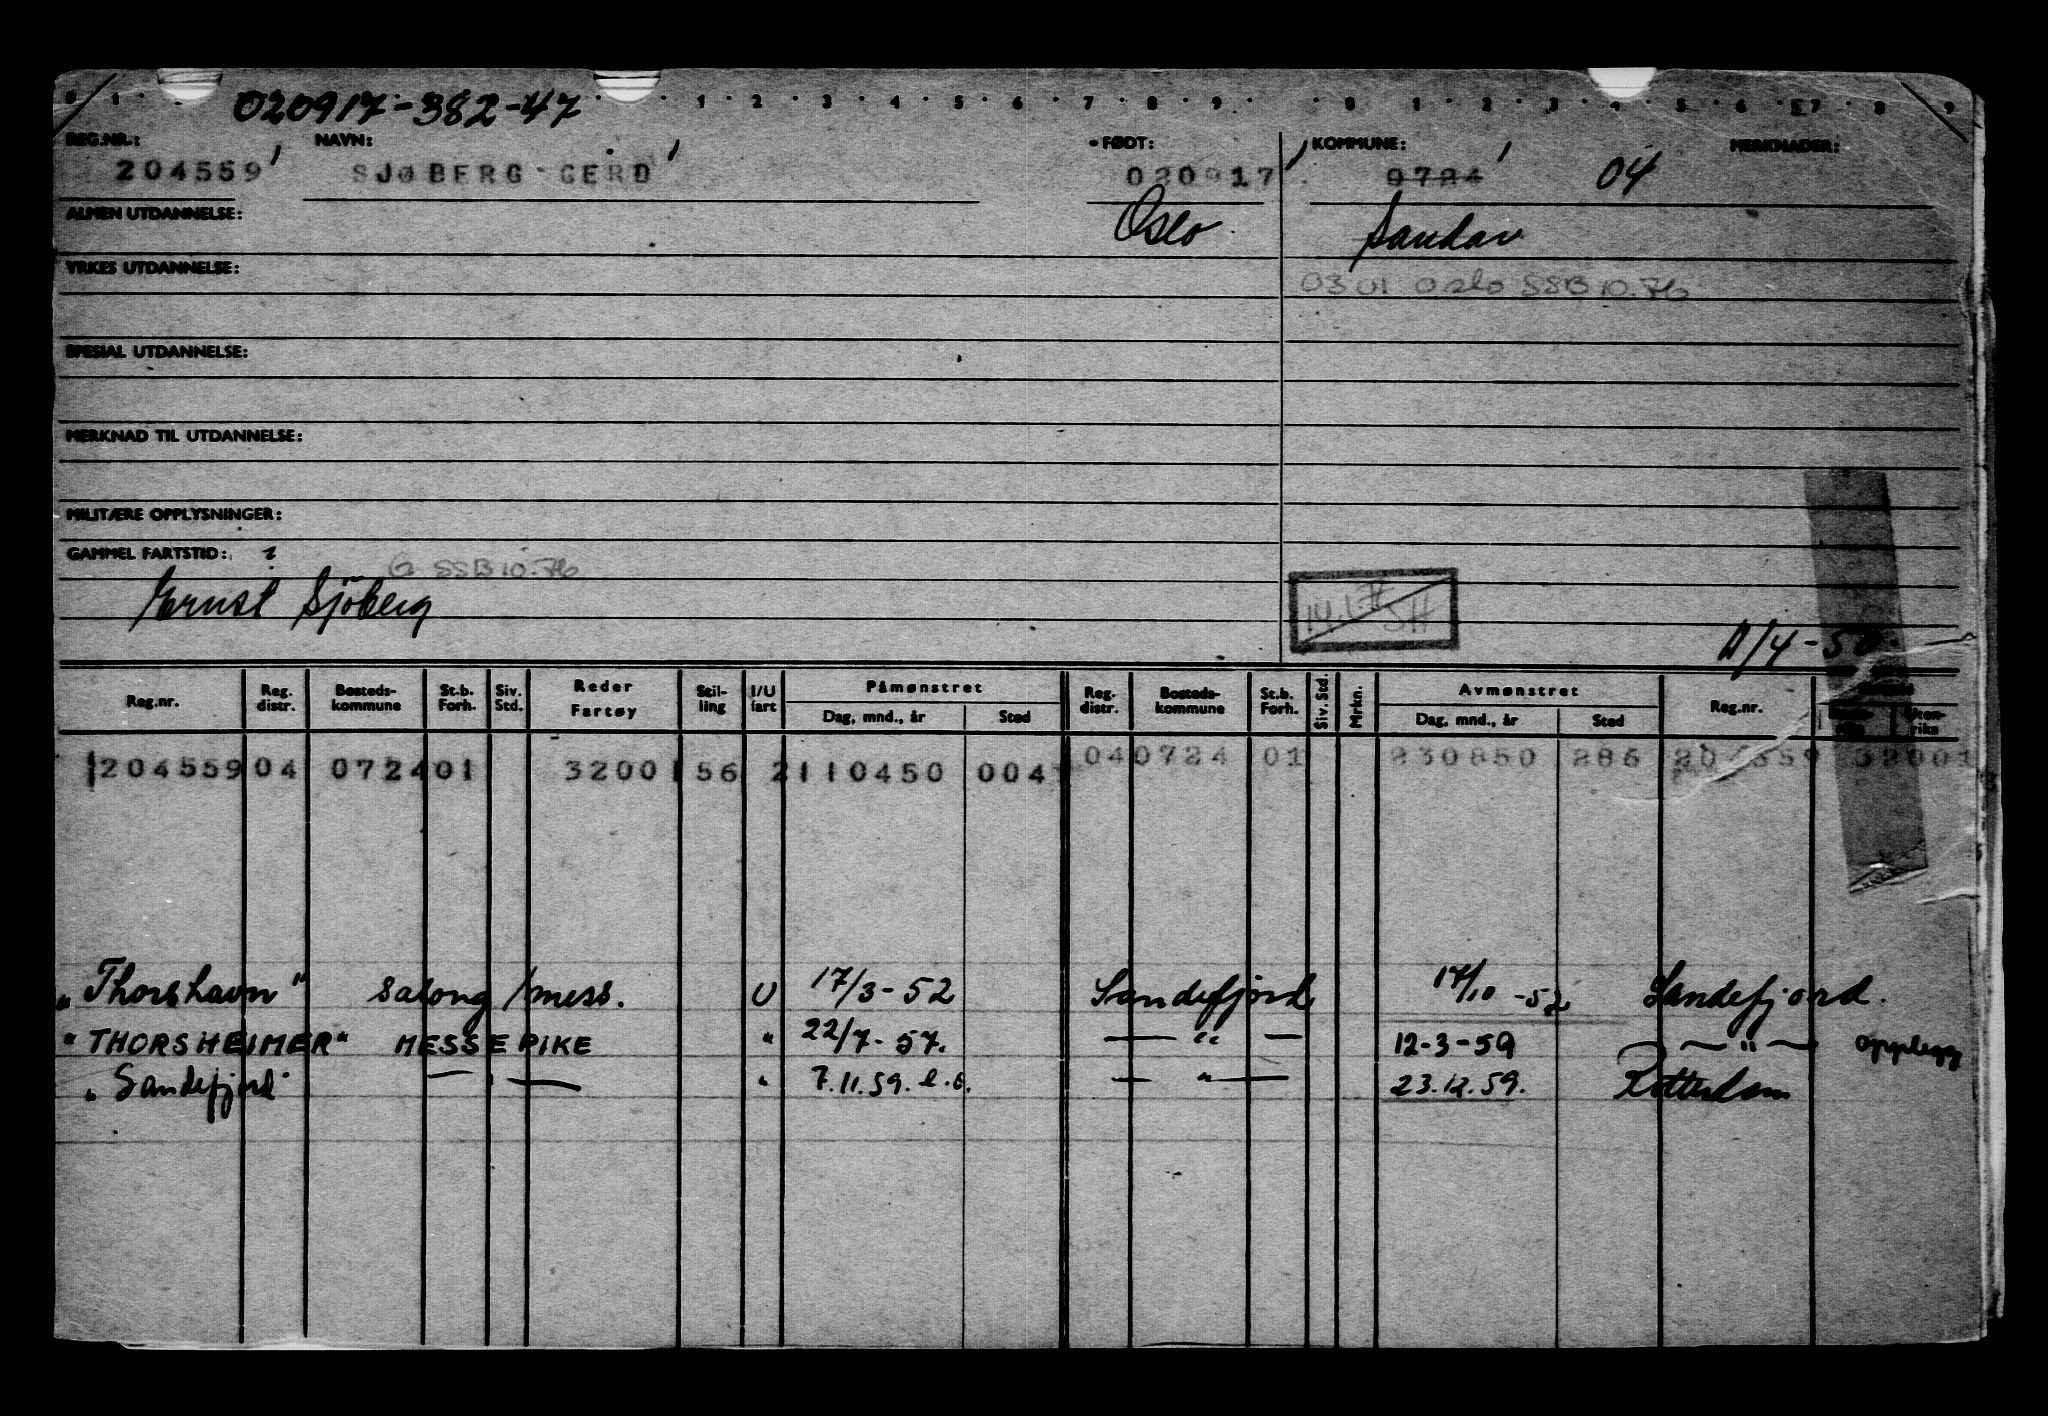 0 1 1 2 3 4 5 6 7 8 9 0 1 2 3 4 5 6 7 8 9
020917-382-47
REG.NR.: NAVN: FØDT: KOMMUNE: MERKNADER:
204559 SJØBERG GERD 020917 0724 04
ALMEN UTDANNELSE: Oslo Sandar
YRKES UTDANNELSE:
0301 Oslo SSB 10.76
SPESIAL UTDANNELSE:
MERKNAD TIL UTDANNELSE:
MILITÆRE OPPLYSNINGER:
GAMMEL FARTSTID:
G SSB 10.76
Ernst Sjöberg
SH
11/4-50.
Reg.nr. Reg. distr. Bosteds-kommune St.b. Forh. Siv. Std. Reder Fartøy Stil-ling I/U fart Påmønstret Dag, mnd., år Sted Reg. distr. Bosteds-kommune St.b. Forh. Siv. Std. Mrkn. Avmønstret Dag, mnd., år Sted Reg.nr. Uten-riks
1204559 04 0724 01 32001 56 2 110450 004 04 0724 01 230850 286 204559 32001
"Thorshavn" Salong/mess. U 17/3-52 Sandefjord 17/10-52 Sandefjord.
"THORSHEIMER" MESSEPIKE " 22/7-57. — " — 12-3-59 — " — opplegg
"Sandefjord" — " — " 7.11.59. — " — 23.12.59. Rotterdam